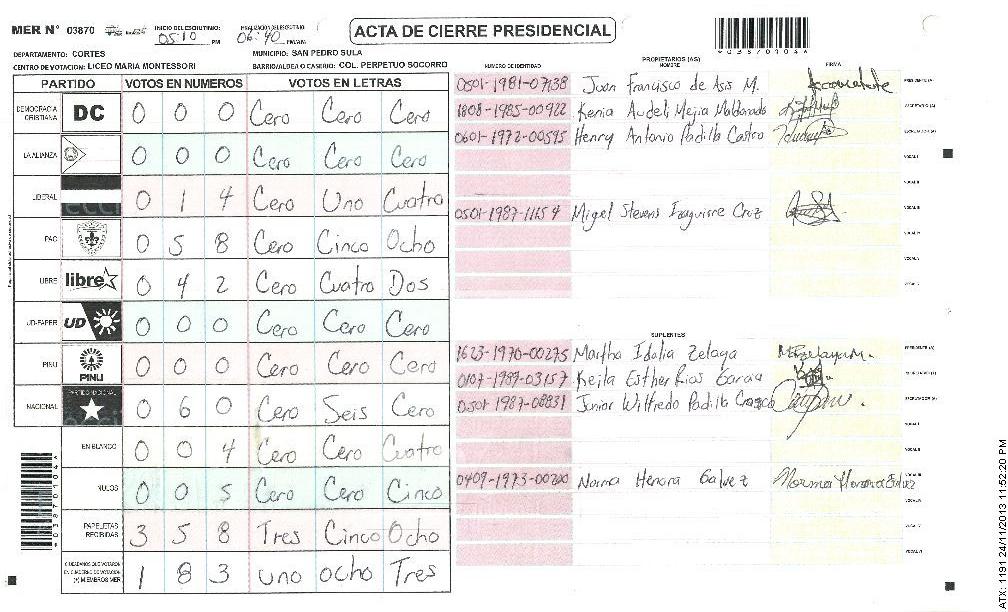 MER N° 03870 INICIO DEL ESCRUTINIO: 05:10 PM FINALIZACION ESCRUTINIO: 06:40 PM/AM
ACTA DE CIERRE PRESIDENCIAL
DEPARTAMENTO: CORTES MUNICIPIO: SAN PEDRO SULA
CENTRO DE VOTACION: LICEO MARIA MONTESSORI BARRIO/ALDEA O CASERIO: COL. PERPETUO SOCORRO
PARTIDO VOTOS EN NUMEROS VOTOS EN LETRAS
DEMOCRACIA CRISTIANA DC 0 0 0 Cero Cero Cero
LA ALIANZA 0 0 0 Cero Cero Cero
LIBERAL 0 1 4 Cero Uno Cuatro
PAC 0 5 8 Cero Cinco Ocho
LIBRE libre 0 4 2 Cero Cuatro Dos
UD-FAPER UD 0 0 0 Cero Cero Cero
PINU PINU 0 0 0 Cero Cero Cero
NACIONAL PARTIDO NACIONAL 0 6 0 Cero Seis Cero
EN BLANCO 0 0 4 Cero Cero Cuatro
NULOS 0 0 5 Cero Cero Cinco
PAPELETAS RECIBIDAS 3 5 8 Tres Cinco Ocho
CIUDADANOS QUE VOTARON EN CUADERNO DE VOTACION (+) MIEMBROS MER 1 8 3 uno ocho Tres
PROPIETARIOS (AS)
NUMERO DE IDENTIDAD NOMBRE FIRMA
0501-1981-07138 Juan Francisco de Asis M. PRESIDENTE(A)
1808-1985-00922 Kenia Audeli Mejia Maldonado SECRETARIO (A)
0601-1972-00595 Henry Antonio Padilla Castro ESCRUTADOR (A)
VOCAL I
VOCAL II
0501-1987-11154 Migel Stevens Izaguirre Cruz VOCAL III
VOCAL IV
VOCAL V
SUPLENTES
1623-1970-00275 Martha Idalia Zelaya PRESIDENTE (A)
0107-1989-03157 Keila Esther Rios Garcia SECRETARIO (A)
0501-1987-08831 Junior Wilfredo Padilla ESCRUTADOR (A)
VOCAL I
VOCAL II
0409-1973-00200 Norma Henora Galvez VOCAL III
VOCAL IV
VOCAL V
VOCAL VI
ATX: 1191 24/11/2013 11:52:20 PM